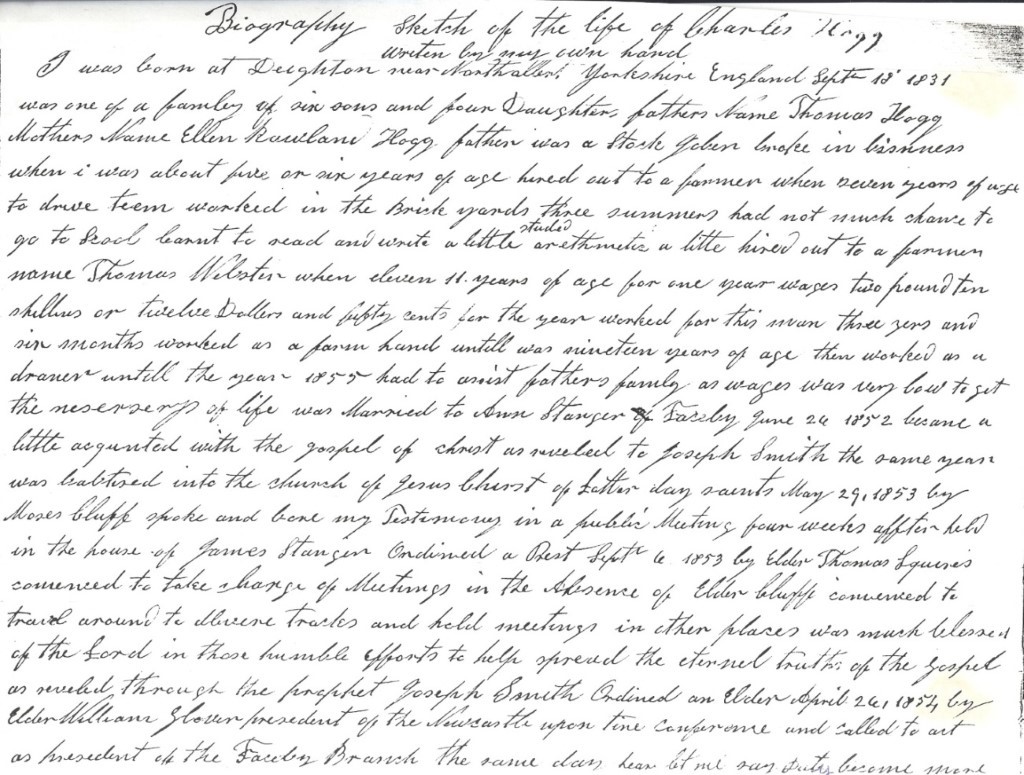 Biography Sketch of the life of Charles Hogg
writen by my own hand
I was born at Deighton near Northaller. Yorkshire England Sept 18 1831
was one of a famley of six sons and four Daughters, fathers Name Thomas Hogg
Mothers Name Ellen Rawland Hogg father was a Stock Joben broke in bisness
when i was about five or six years of age hired out to a farmer when seven years of age
to drive teem worked in the Brick yards three summers had not much chance to
go to Scool learnt to read and write a little studed arethmetic a litte hired out to a farmer
name Thomas Webster when eleven 11. years of age for one year wages two pound ten
shillins or twelve Dollers and fifty cents for the year worked for this man three yers and
six months worked as a farm hand untill was nineteen years of age then worked as a
draner untill the year 1855 had to assist fathers family as wages was very low to get
the neserserys of life was Married to Ann Stanger of Faceby June 26 1852 became a
little acqunted with the gospel of christ as reveled to Joseph Smith the same year
was babtised into the church of Jesus Christ of Latter day saints May 29, 1853 by
Moses Cluff spoke and bore my Testimony in a public Meeting four weeks affter held
in the house of James Stanger Ordined a Prest Sept 6 1853 by Elder Thomas Squires
comenced to take charge of Meetings in the Absence of Elder Cluff comenced to
travel around to dlivere tracts and hold meetings in other places was much blessed
of the Lord in those humble efforts to help spread the eternel truths of the Gospel
as reveled, through the prophet Joseph Smith Ordined an Elder April 26, 1854 by
Elder William Glover president of the Newcastle upon tine conferance and called to act
as president of the Faceby Branch the same day hear let me say duties become more